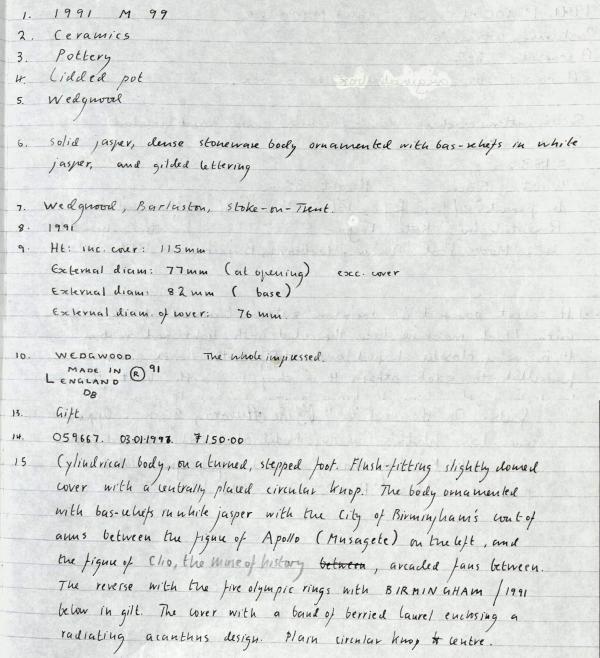 1. 1991 M 99
2. Ceramics
3. Pottery
4. Lidded pot
5. Wedgwood
6. Solid jasper, dense stoneware body ornamented with bas-reliefs in white
jasper, and gilded lettering
7. Wedgwood, Barlaston, Stoke-on-Trent.
8. 1991
9. Ht: inc. cover: 115mm
External diam: 77mm (at opening) exc. cover
External diam: 82mm (base)
External diam. of cover: 76 mm.
10. WEDGWOOD The whole impressed.
MADE IN ® 91
L ENGLAND
DB
13. Gift.
14. 059667. 03.01.1997. £150.00
15 Cylindrical body, on a turned, stepped foot. Flush-fitting slightly domed
cover with a centrally placed circular knop. The body ornamented
with bas-reliefs in white jasper with the City of Birmingham's coat of
arms between the figure of Apollo (Musagete) on the left, and
the figure of Clio, the muse of history between, arcaded fans between.
The reverse with the five olympic rings with BIRMINGHAM / 1991
below in gilt. The cover with a band of berried laurel enclosing a
radiating acanthus design. Plain circular knop centre.